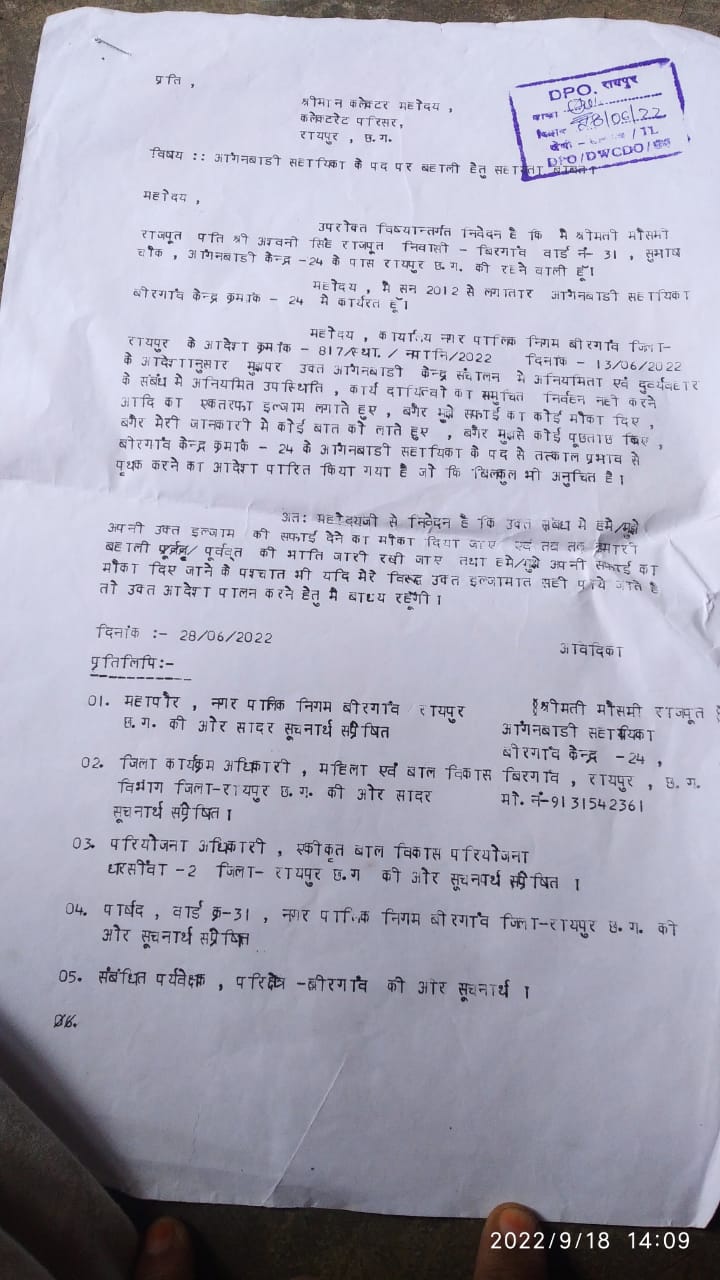 प्रति ,
श्रीमान कलेक्टर महोदय ,
कलेक्टरेट परिसर,
रायपुर , छ.ग.
DPO. रायपुर
28/06/22
/ TL
DPO/DWCDO/
विषय :: आंगनबाडी सहायिका के पद पर बहाली हेतु सहायता बाबत।
महोदय ,
उपरोक्त विषयान्तर्गत निवेदन है कि मै श्रीमती मौसमी
राजपूत पति श्री अश्वनी सिंह राजपूत निवासी - बिरगांव वार्ड नं- 31 , सुभाष
चौक , आंगनबाडी केन्द्र -24 के पास रायपुर छ.ग. की रहने वाली हूँ।
महोदय , मै सन 2012 से लगातार आंगनबाडी सहायिका
बीरगांव केन्द्र क्रमांक - 24 मे कार्यरत हूँ।
महोदय , कार्यालय नगर पालिक निगम बीरगांव जिला-
रायपुर के आदेश क्रमांक - 817/स्था. / नपानि/2022 दिनांक - 13/06/2022
के आदेशानुसार मुझपर उक्त आंगनबाडी केन्द्र संचालन मे अनियमिता एवं दुर्व्यवहार
के संबंध मे अनियमित उपस्थिति , कार्य दायित्वो का समुचित निर्वहन नही करने
आदि का एकतरफा इल्जाम लगाते हुए , बगैर मुझे सफाई का कोई मौका दिए ,
बगैर मेरी जानकारी मे कोई बात को लाते हुए , बगैर मुझसे कोई पूछताछ किए ,
बीरगांव केन्द्र क्रमांक - 24 के आंगनबाडी सहायिका के पद से तत्काल प्रभाव से
पृथक करने का आदेश पारित किया गया है जो कि बिलकुल भी अनुचित है।
अतः महोदयजी से निवेदन है कि उक्त संबंध मे हमे/मुझे
अपनी उक्त इल्जाम की सफाई देने का मौका दिया जाए एवं तब तक हमारी
बहाली पूर्ववत की भांति जारी रखी जाए तथा हमे/मुझे अपनी सफाई का
मौका दिए जाने के पश्चात भी यदि मेरे विरूद्ध उक्त इल्जामात सही पाये जाते है
तो उक्त आदेश पालन करने हेतु मै बाध्य रहूँगी।
दिनांक :- 28/06/2022
आवेदिका
प्रतिलिपि:-
श्रीमती मौसमी राजपूत
आंगनबाडी सहायिका
बीरगांव केन्द्र -24 ,
बिरगांव , रायपुर , छ.ग.
मो. नं-9131542361
01. महापौर , नगर पालिक निगम बीरगांव रायपुर
छ.ग. की ओर सादर सूचनार्थ संप्रेषित
02. जिला कार्यक्रम अधिकारी , महिला एवं बाल विकास
विभाग जिला-रायपुर छ.ग. की ओर सादर
सूचनार्थ संप्रेषित।
03. परियोजना अधिकारी , एकीकृत बाल विकास परियोजना
धरसींवा -2 जिला- रायपुर छ.ग की ओर सूचनार्थ संप्रेषित ।
04. पार्षद , वार्ड क्र-31 , नगर पालिक निगम बीरगांव जिला-रायपुर छ.ग. की
ओर सूचनार्थ संप्रेषित
05. संबंधित पर्यवेक्षक , परिक्षेत्र -बीरगांव की ओर सूचनार्थ ।
06.
2022/9/18 14:09